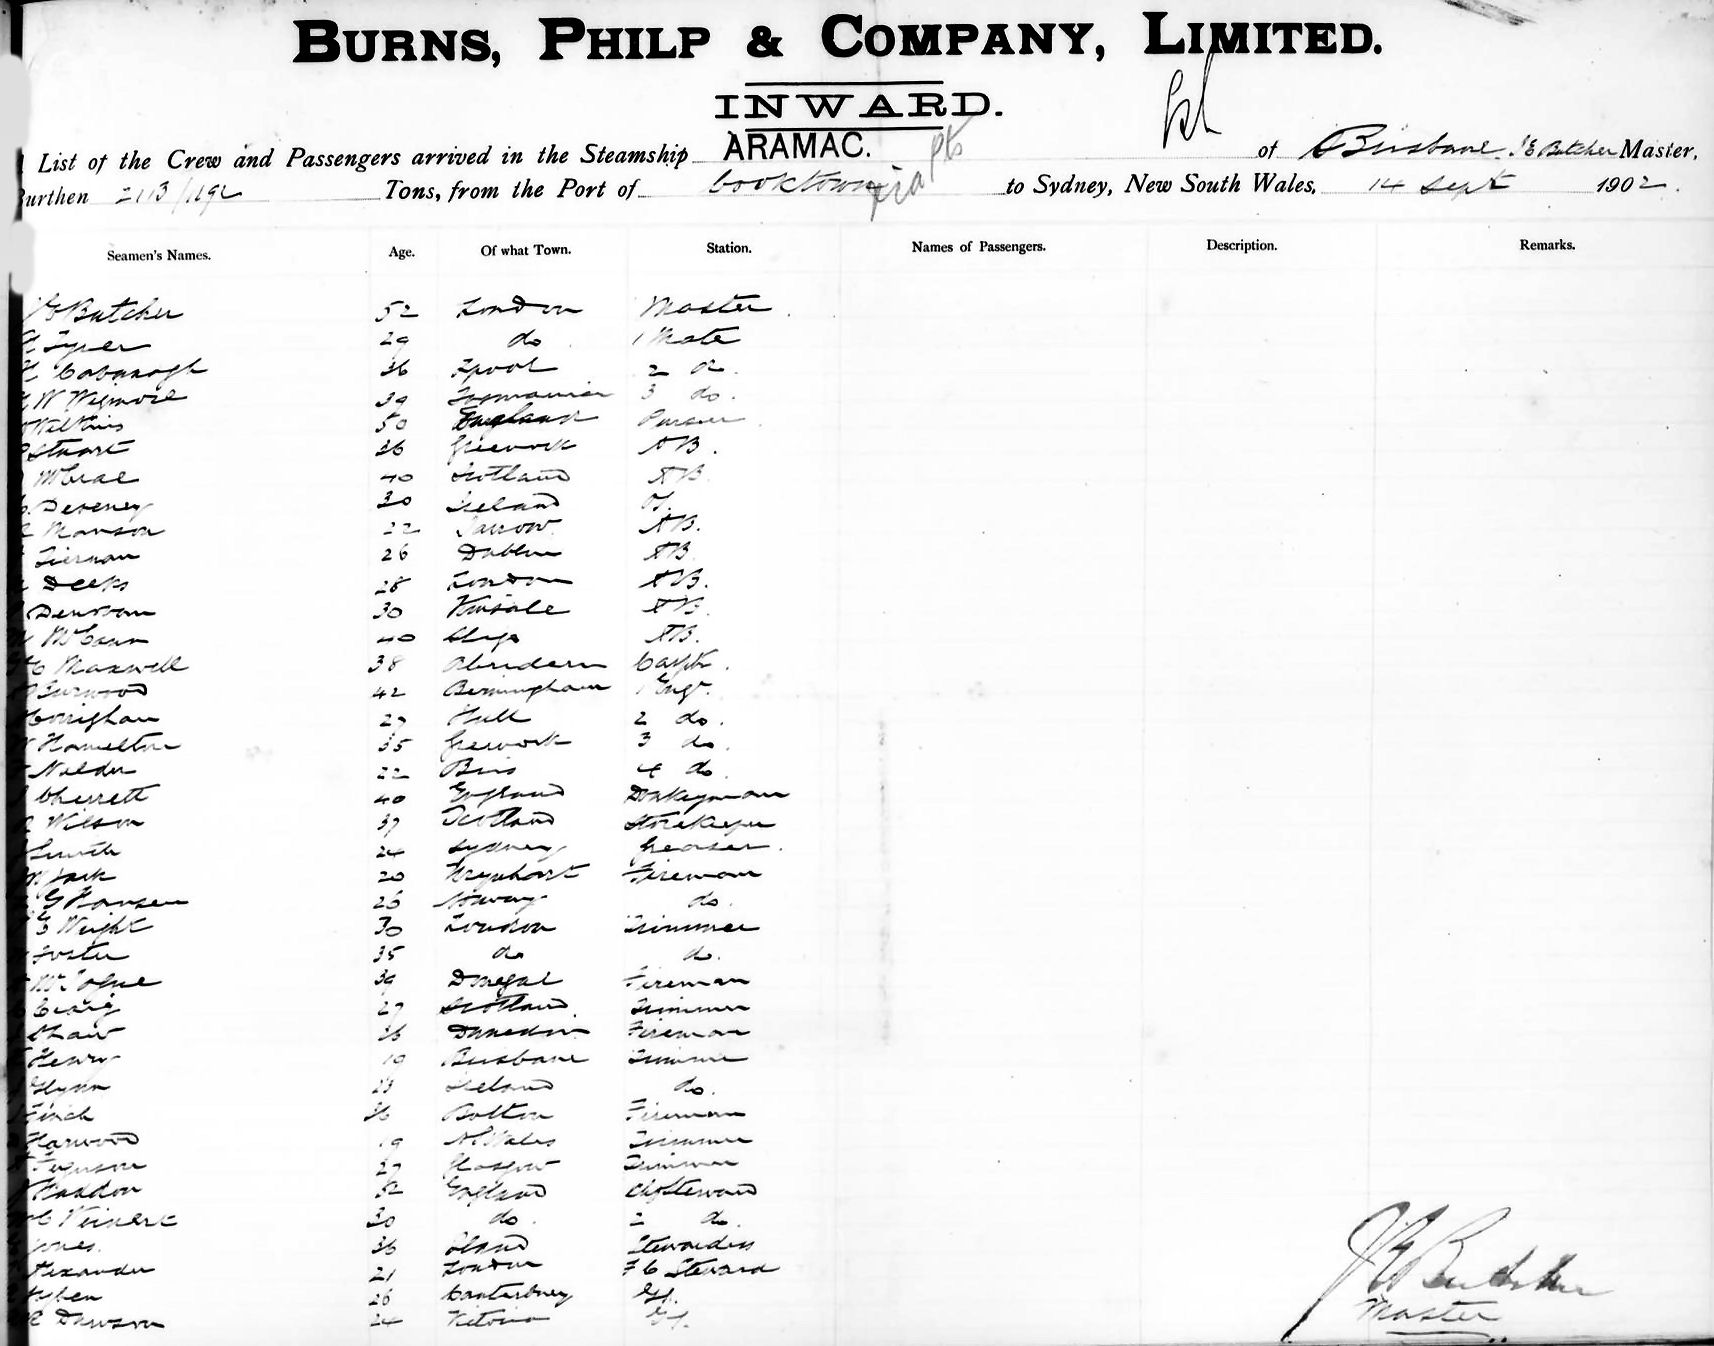 BURNS, PHILP & COMPANY, LIMITED.
INWARD.
List of the Crew and Passengers arrived in the Steamship ARAMAC. of Brisbane. J E Butcher Master,
Burthen 2113/ Tons, from the Port of Cooktown via pts to Sydney, New South Wales, 14 Sept 1902.
Seamen's Names. Age. Of what Town. Station. Names of Passengers. Description. Remarks.
J E Butcher 52 London Master.
Tyrer 29 do 1 Mate
Cavanagh 36 Lpool 2 do.
W Wigmore 39 Tasmania 3 do.
Watkins 50 England Purser
Stuart 36 Greenock AB.
McCrae 40 Scotland AB
Deveney 30 Ireland OS.
Manson 22 Jarrow AB.
Tiernan 26 Dublin AB
Deeks 28 London AB.
30 Kinsale AB.
McCann 40 Sligo AB.
C Maxwell 38 Aberdeen Carptr.
42 Birmingham 1 Engr.
Horrigham 27 Hull 2 do.
Hamilton 35 Greenock 3 do.
Nelder 22 Bris 4 do.
Cherrett 40 England Donkeyman
Wilson 37 Scotland Storekeeper
Smith 24 Sydney Greaser.
Jack 20 Fireman
G Hansen 26 Norway do.
G Wright 30 London Trimmer
Foster 35 do do.
39 Donegal Fireman
Craig 27 Scotland. Trimmer
Shaw 36 Dunedin Fireman
Henry 19 Brisbane Trimmer
Glynn 23 Ireland do.
Finch 36 Bolton Fireman
Harwood 19 N S Wales Trimmer
Ferguson 27 Glasgow Trimmer
Haddon 52 England Ch Steward
30 do. 2 do.
Jones. 36 Stewardess
Alexander 21 London F C Steward
26 Canterbury
Dawson 24 Victoria
J E Butcher
Master